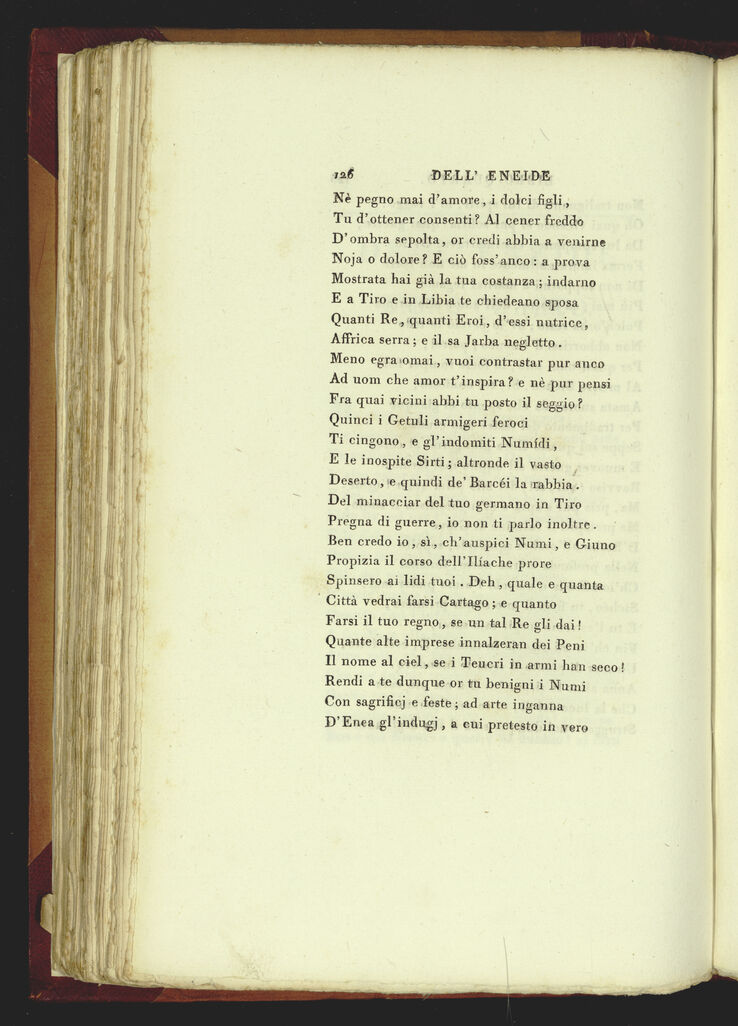 126 DELL' ENEIDE
Nè pegno mai d'amore, i dolci figli,
Tu d'ottener consenti? Al cener freddo
D'ombra sepolta, or credi abbia a venirne
Noja o dolore? E ciò foss'anco: a prova
Mostrata hai già la tua costanza; indarno
E a Tiro e in Libia te chiedeano sposa
Quanti Re, quanti Eroi, d'essi nutrice,
Affrica serra; e il sa Jarba negletto.
Meno egra omai, vuoi contrastar pur anco
Ad uom che amor t'inspira? e nè pur pensi
Fra quai vicini abbi tu posto il seggio?
Quinci i Getuli armigeri feroci
Ti cingono, e gl'indomiti Numídi,
E le inospite Sirti; altronde il vasto
Deserto, e quindi de' Barcéi la rabbia.
Del minacciar del tuo germano in Tiro
Pregna di guerre, io non ti parlo inoltre.
Ben credo io, sì, ch'auspici Numi, e Giuno
Propizia il corso dell'Ilíache prore
Spinsero ai lidi tuoi. Deh, quale e quanta
Città vedrai farsi Cartago; e quanto
Farsi il tuo regno, se un tal Re gli dai!
Quante alte imprese innalzeran dei Peni
Il nome al ciel, se i Teucri in armi han seco!
Rendi a te dunque or tu benigni i Numi
Con sagrificj e feste; ad arte inganna
D'Enea gl'indugj, a cui pretesto in vero